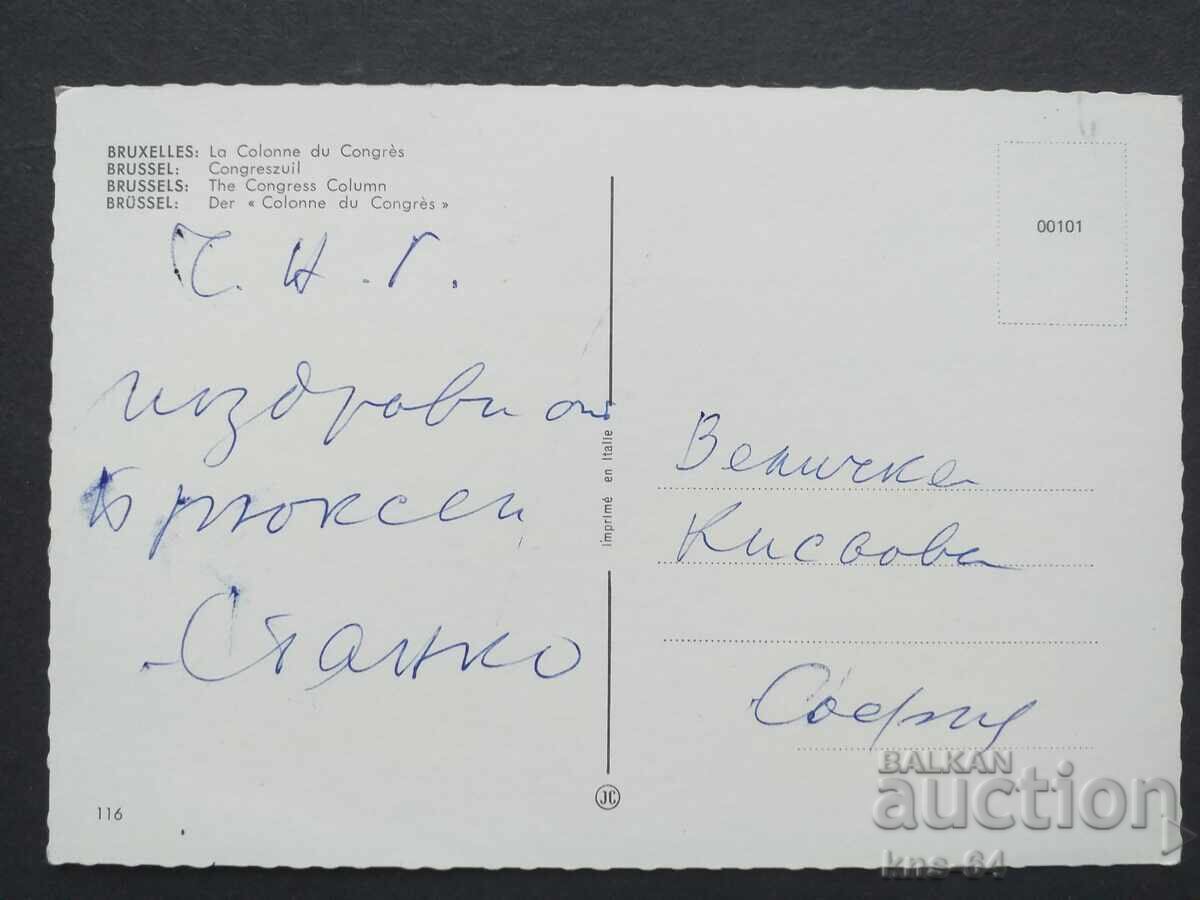 BRUXELLES: La Colonne du Congrès
BRUSSEL: Congreszuil
BRUSSELS: The Congress Column
BRÜSSEL: Der « Colonne du Congrès »
Ч.Н.Г.
поздрави от
Брюксел
Станко
116
Imprimé en Italie
JC
00101
Величка
София
BALKAN
auction
kns-64